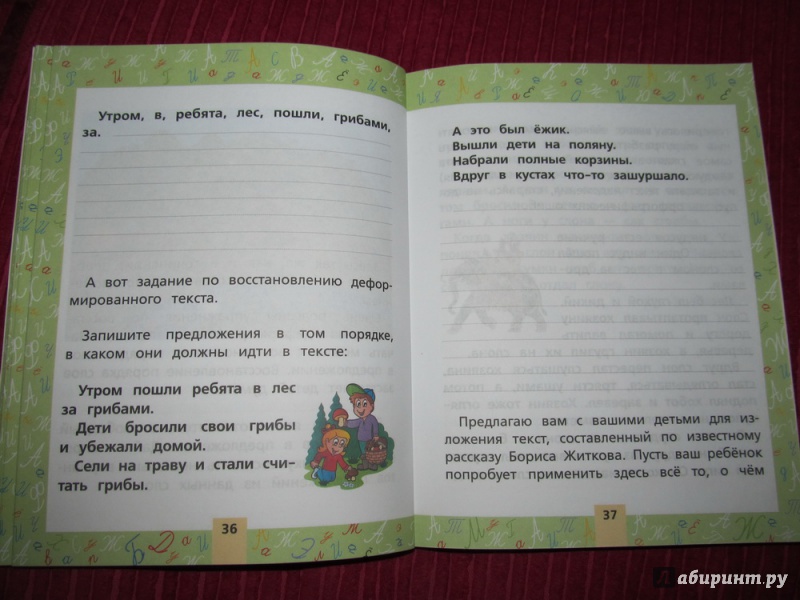 Утром, в, ребята, лес, пошли, грибами,
за.
А вот задание по восстановлению дефор-
мированного текста.
Запишите предложения в том порядке,
в каком они должны идти в тексте:
Утром пошли ребята в лес
за грибами.
Дети бросили свои грибы
и убежали домой.
Сели на траву и стали счи-
тать грибы.
36
А это был ёжик.
Вышли дети на поляну.
Набрали полные корзины.
Вдруг в кустах что-то зашуршало.
Предлагаю вам с вашими детьми для из-
ложения текст, составленный по известному
рассказу Бориса Житкова. Пусть ваш ребёнок
попробует применить здесь всё то, о чём
37
Лабиринт.ру